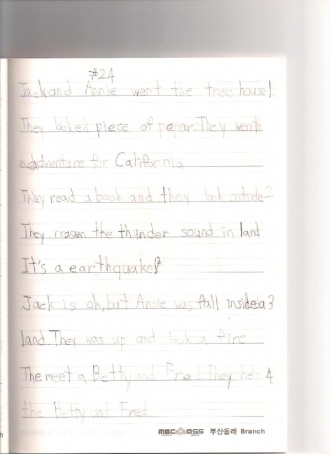 #24
Jack and Annie went the tree house!
They looked piece of pepar. They went
adventure for California
They read a book and they look outside?
They reason the thunder sound in land
It's a earthquake?
Jack is oh, but Annie was fall inside a 3
land. They was up and look a fire
The meet a Betty and Fred. They help 4
the Betty and Fred
MBC 부산동래 Branch